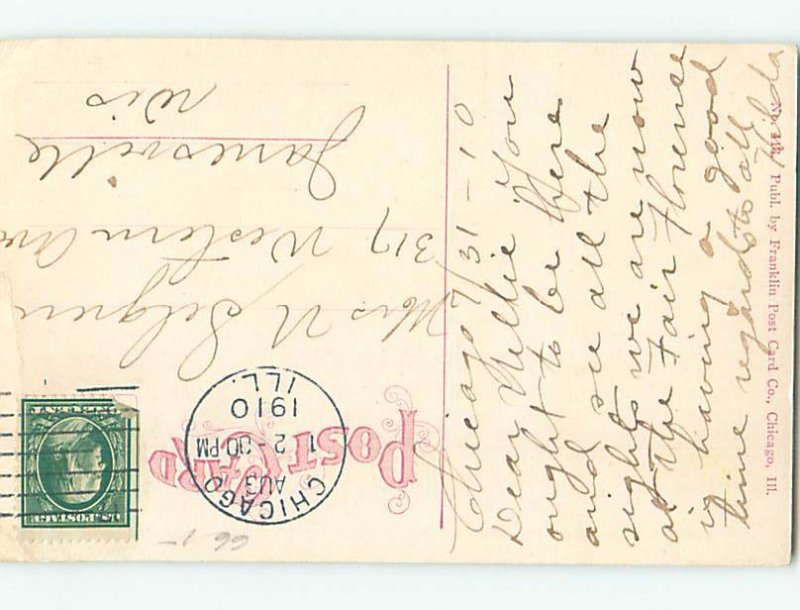 Chicago 7/31-10
Dear Nellie You
ought to be here
and see all the
sights we are now
at the Fair Florence
is having a good
time regards to all
Hilda
No. 115 Publ. by Franklin Post Card Co., Chicago, Ill.
POST CARD
CHICAGO
AUG 1
2-30PM
1910
ILL.
U.S. POSTAGE
Mrs N Selgren
317 Western Ave
Janesville
Wis